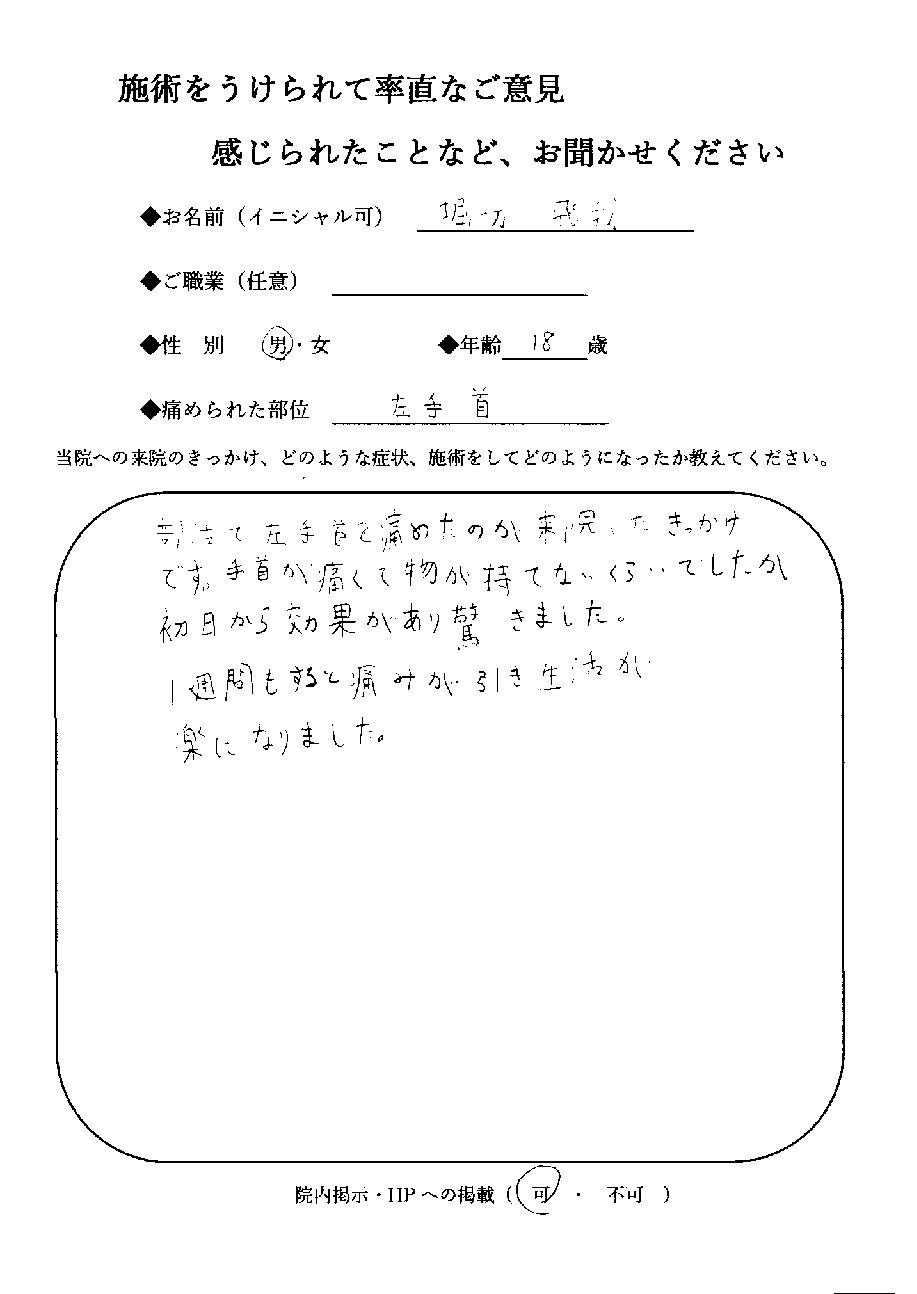 施術をうけられて率直なご意見
感じられたことなど、お聞かせください
◆お名前（イニシャル可） 堀切
◆ご職業（任意）
◆性 別 男・女 ◆年齢 18 歳
◆痛められた部位 左手首
当院への来院のきっかけ、どのような症状、施術をしてどのようになったか教えてください。
部活で左手首を痛めたのが来院したきっかけ
です。手首が痛くて物が持てないくらいでしたが
初日から効果があり驚きました。
1週間もすると痛みが引き生活が
楽になりました。
院内掲示・HPへの掲載（ 可 ・ 不可 ）